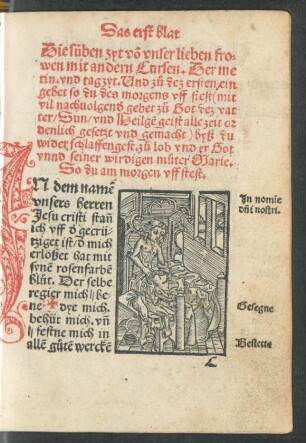 Das erst blat
Die süben zyt võ vnser lieben fro-
wen mit andern Cursen. Der me
tin. vnd tagzyt. Und zů dez ersten, ein
gebet so du den morgens vff stest (mit
vil nachuolgend gebet zu Got dez vat
ter/Sun/ vnd Heilgē geist alle zeit or
denlich gesetzt vnd gemacht) byß du
wider schlaffen gest zů lob vnd er Got
vnnd seiner wirdigen můter Marie.
So du am morgen vff stest.
IN dem namē
vnsers herren
Jesu cristi stan
ich vff d̄ gecrü
tziget ist/ d̄ mich
erlößet hat mit
synē rosenfarbē
blůt. Der selbe
regier mich || be
ne ✚ dye mich.
behüt mich. vñ
|| festne mich in
allē gůtē wercken
In nomīe
dñi nostri.
Gesegne
Bestette